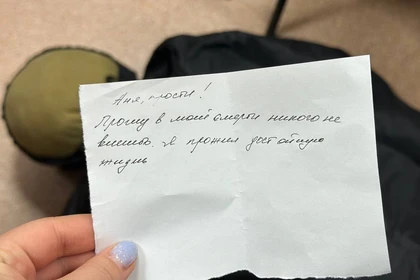 Аня, прости!
Прошу в моей смерти никого не
винить. Я прожил достойную
жизнь